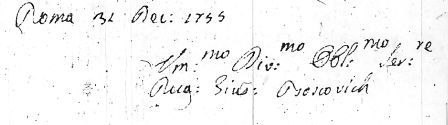 Roma 31 Dec: 1755
Um.mo Div.mo Obl.mo Ser.re
Rug: Gius: Boscovich